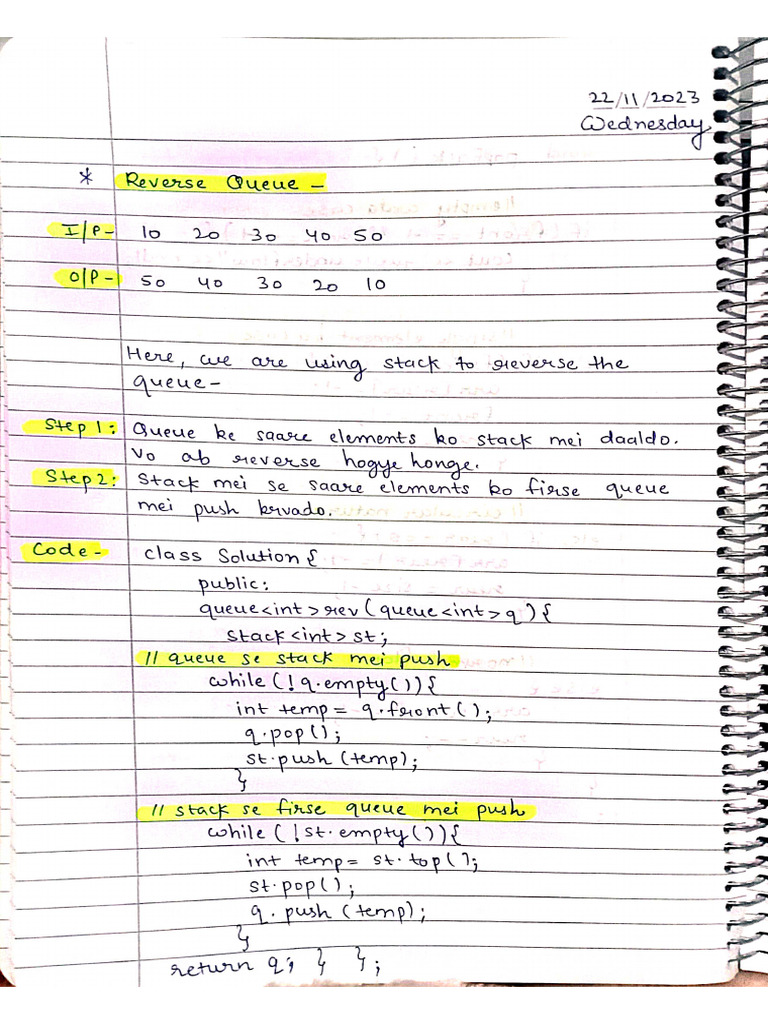 22/11/2023
Wednesday
* Reverse Queue -
I/P- 10 20 30 40 50
O/P- 50 40 30 20 10
Here, we are using stack to reverse the
queue-
Step 1: Queue ke saare elements ko stack mei daaldo.
Vo ab reverse hogye honge.
Step 2: Stack mei se saare elements ko firse queue
mei push krvado.
Code- class Solution {
public:
queue<int> rev (queue<int> q) {
stack<int> st;
// queue se stack mei push
while (! q.empty()) {
int temp = q.front();
q.pop();
st.push (temp);
}
// stack se firse queue mei push
while (! st.empty()) {
int temp = st.top();
st.pop();
q.push (temp);
}
return q; } };